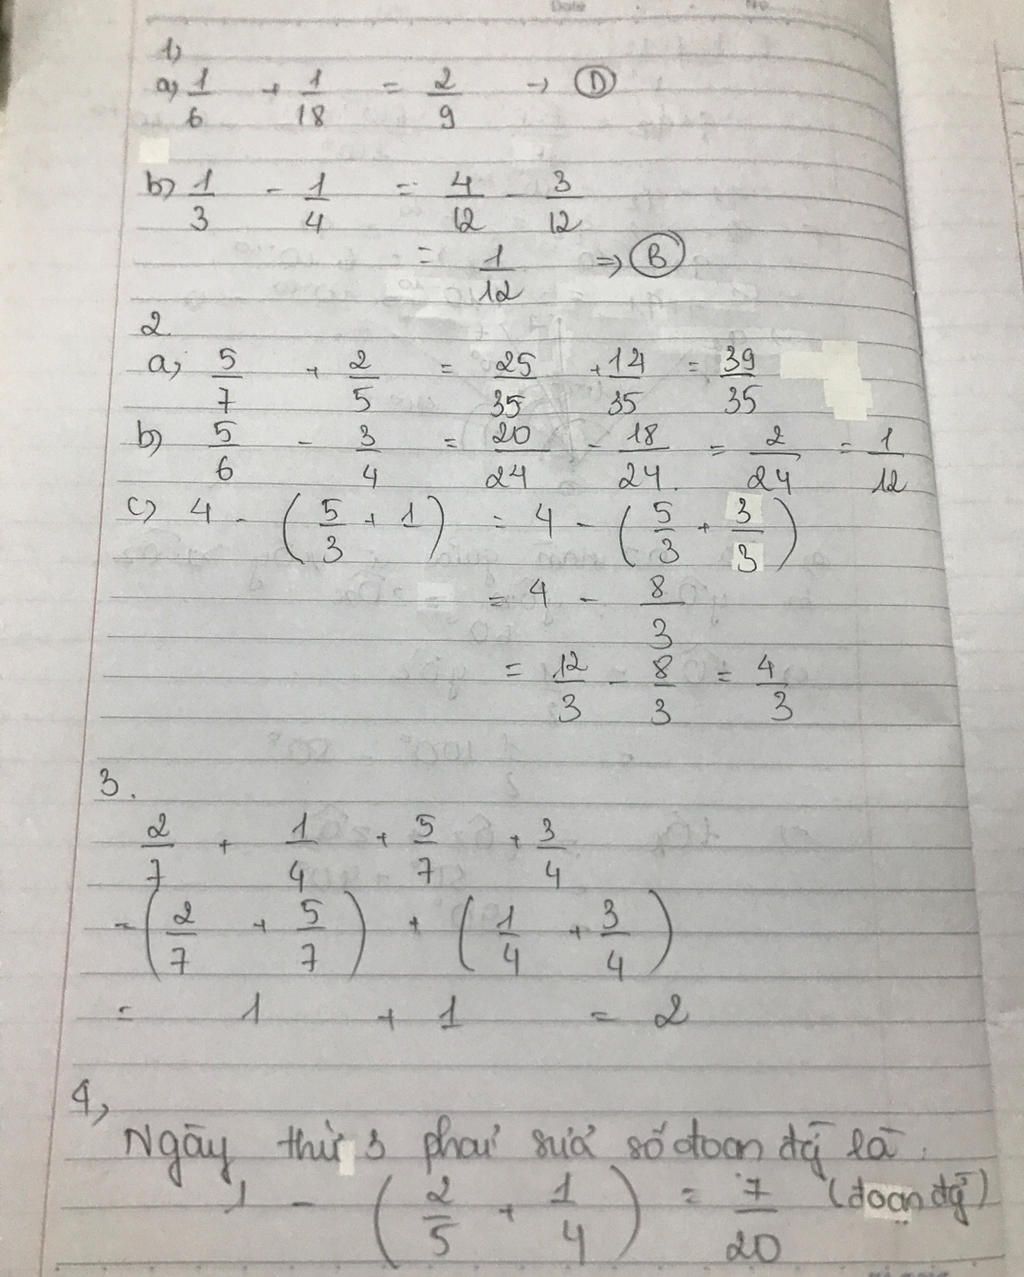 Date No.
1)
a) 1/6 + 1/18 = 2/9 → D
b) 1/3 - 1/4 = 4/12 - 3/12
= 1/12 ⇒ B
2
a) 5/7 + 2/5 = 25/35 + 14/35 = 39/35
b) 5/6 - 3/4 = 20/24 - 18/24 = 2/24 = 1/12
c) 4 - (5/3 + 1) = 4 - (5/3 + 3/3)
= 4 - 8/3
= 12/3 - 8/3 = 4/3
3.
2/7 + 1/4 + 5/7 + 3/4
= (2/7 + 5/7) + (1/4 + 3/4)
= 1 + 1 = 2
4,
Ngày thứ 3 phải sửa số đoạn đg là:
1 - (2/5 + 1/4) = 7/20 (đoạn đg)